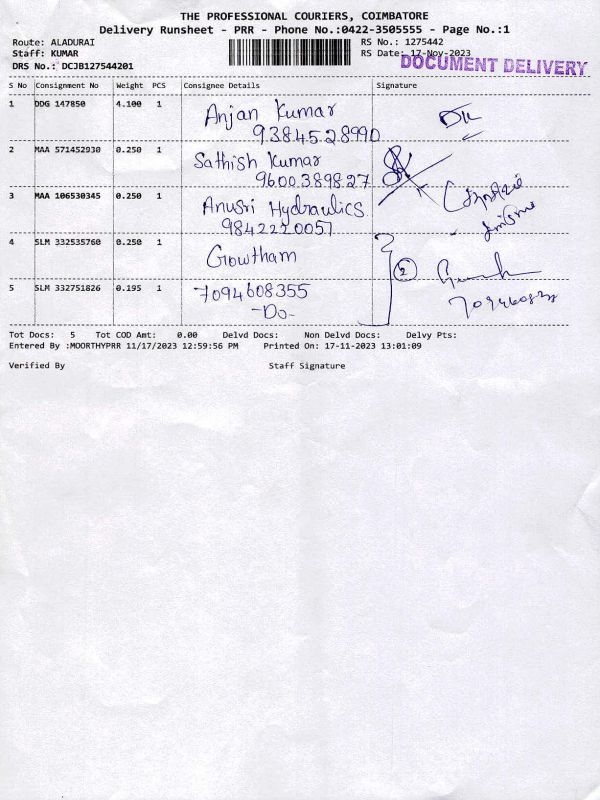 THE PROFESSIONAL COURIERS, COIMBATORE
Delivery Runsheet - PRR - Phone No.:0422-3505555 - Page No.:1
Route: ALADURAI RS No.: 1275442
Staff: KUMAR RS Date: 17-Nov-2023
DRS No.: DCJB127544201 DOCUMENT DELIVERY
S No Consignment No Weight PCS Consignee Details Signature
1 DDG 147850 4.100 1 Anjan Kumar
9384528990
2 MAA 571452930 0.250 1 Sathish Kumar
9600389827
3 MAA 106530345 0.250 1 Anusri Hydraulics
9842220057
4 SLM 332535760 0.250 1 Gowtham 2
5 SLM 332751826 0.195 1 7094608355
-Do-
Tot Docs: 5 Tot COD Amt: 0.00 Delvd Docs: Non Delvd Docs: Delvy Pts:
Entered By :MOORTHYPRR 11/17/2023 12:59:56 PM Printed On: 17-11-2023 13:01:09
Verified By Staff Signature